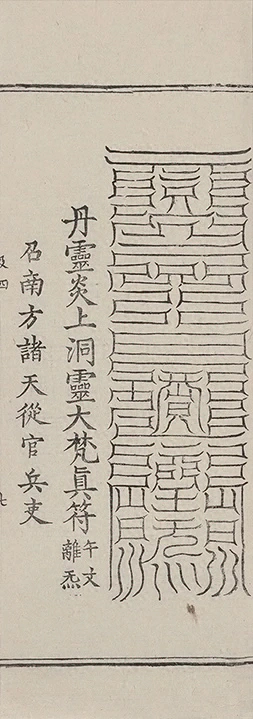 丹靈炎上洞靈大梵真符
午文
離炁
召南方諸天從官兵吏
四
七